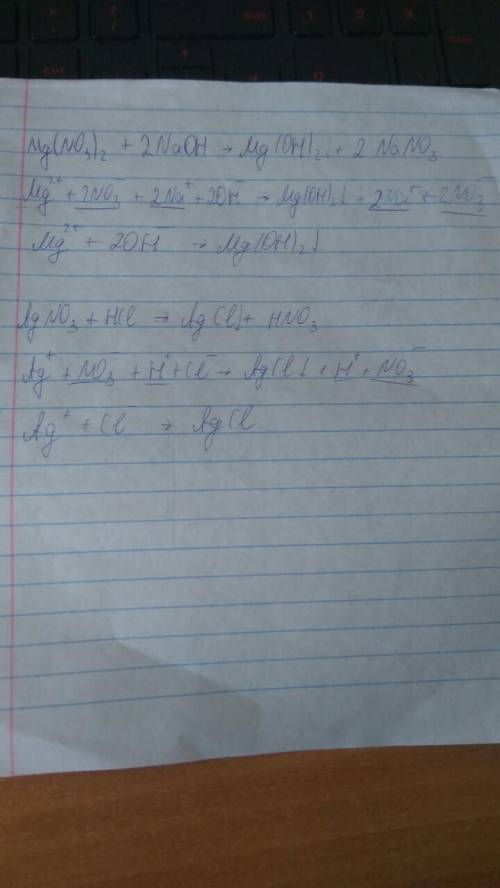 Mg(NO₃)₂ + 2NaOH → Mg(OH)₂↓ + 2NaNO₃
Mg²⁺ + 2NO₃⁻ + 2Na⁺ + 2OH⁻ → Mg(OH)₂↓ + 2Na⁺ + 2NO₃⁻
Mg²⁺ + 2OH⁻ → Mg(OH)₂↓
AgNO₃ + HCl → AgCl↓ + HNO₃
Ag⁺ + NO₃⁻ + H⁺ + Cl⁻ → AgCl↓ + H⁺ + NO₃⁻
Ag⁺ + Cl⁻ → AgCl